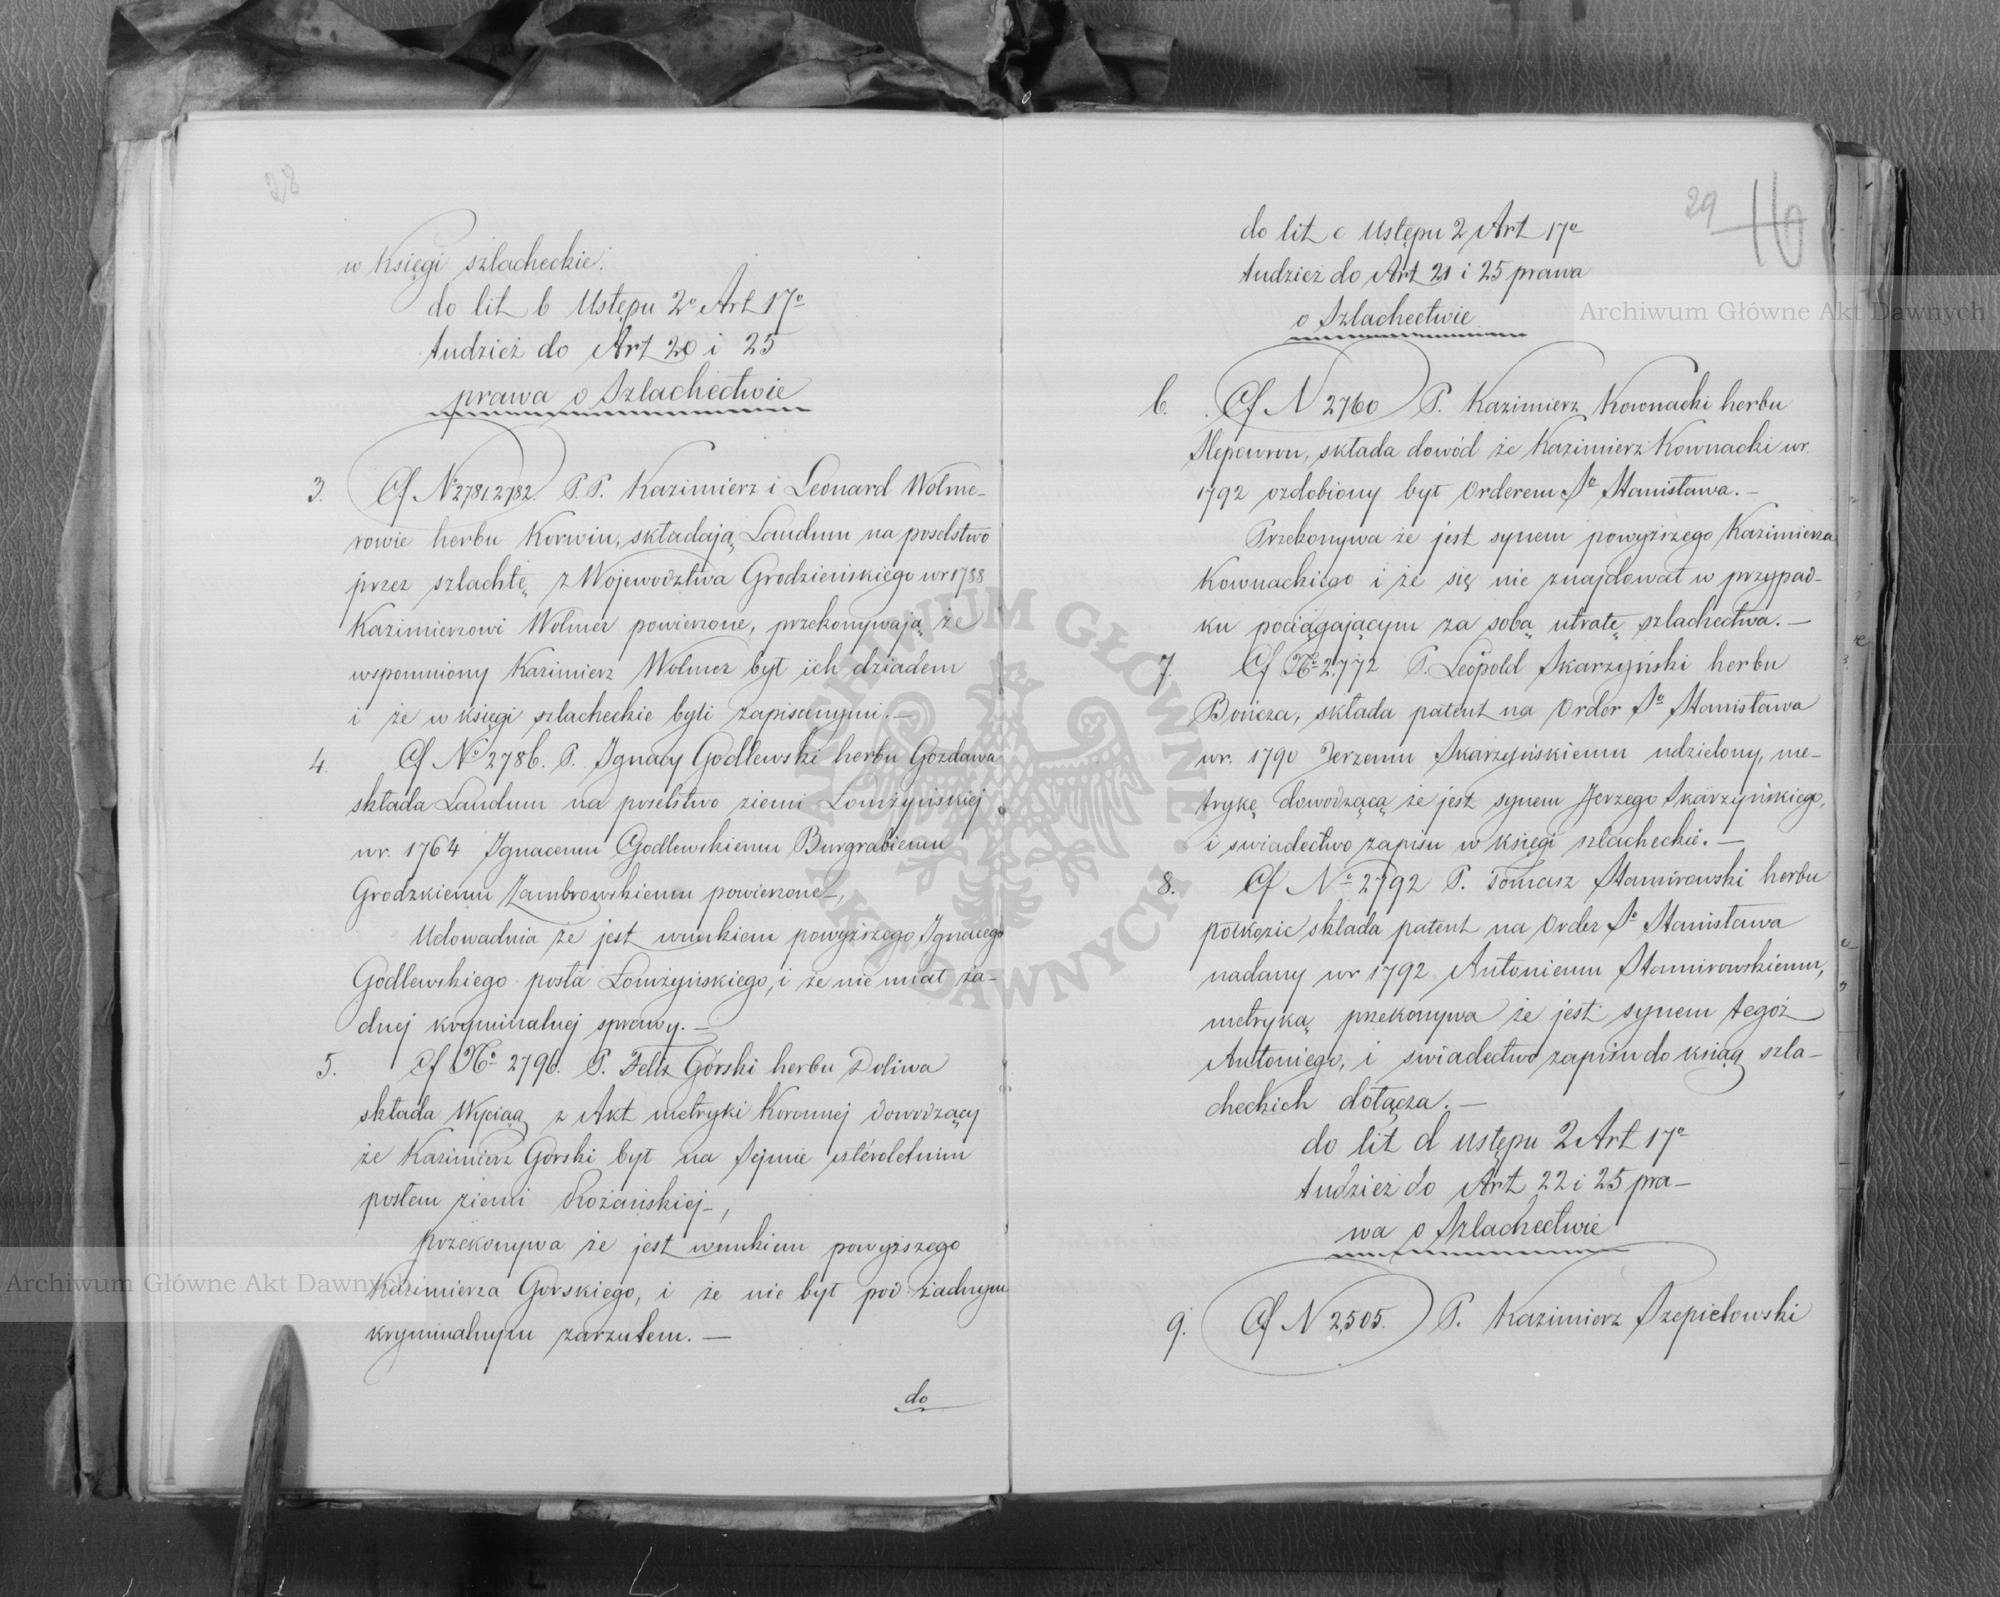 28
w Księgi szlacheckie.
do lit b Ustępu 2o Art 17o
tudzież do Art 20 i 25
prawa o Szlachectwie
3. Cf No 2781.2782. P.P. Kazimierz i Leonard Wolme-
rowie herbu Korwin, składają Laudum na poselstwo
przez szlachtę z Województwa Grodzieńskiego w r 1788
Kazimierzowi Wolmer powierzone, przekonywają że
wspomniony Kazimierz Wolmer był ich dziadem
i że w księgi szlacheckie byli zapisanymi. —
4. Cf No 2786. P. Ignacy Godlewski herbu Gozdawa
składa Laudum na poselstwo ziemi Łomżyńskiej
w r. 1764 Ignacemu Godlewskiemu Burgrabiemu
Grodzkiemu Zambrowskiemu powierzone —,
Udowadnia że jest wnukiem powyższego Ignacego
Godlewskiego posła Łomżyńskiego, i że nie miał ża-
dnej kryminalnej sprawy. —
5. Cf No 2796. P. Felix Górski herbu Doliwa
składa Wyciąg z Akt metryki Koronnej dowodzący
że Kazimierz Górski był na Sejmie czteroletnim
posłem ziemi Rożańskiej —,
przekonywa że jest wnukiem powyższego
Kazimierza Gorskiego, i że nie był pod żadnym
kryminalnym zarzutem. —
do
29 16
do lit c Ustępu 2 Art 17o
tudzież do Art 21 i 25 prawa
o Szlachectwie
6. Cf N 2760 P. Kazimierz Kownacki herbu
Ślepowron, składa dowód że Kazimierz Kownacki w r.
1792 ozdobiony był Orderem So Stanisława. —
Przekonywa że jest synem powyższego Kazimierza
Kownackiego i że się nie znajdował w przypad-
ku pociągającym za sobą utratę szlachectwa. —
7. Cf No 2772 P. Leopold Skarzyński herbu
Bończa, składa patent na Order So Stanisława
w r. 1790 Jerzemu Skarzyńskiemu udzielony, me-
trykę dowodzącą że jest synem Jerzego Skarzyńskiego,
i swiadectwo zapisu w księgi szlacheckie. —
8. Cf No 2792 P. Tomasz Stamirowski herbu
półkozic składa patent na Order So Stanisława
nadany w r 1792 Antoniemu Stamirowskiemu,
metryką przekonywa że jest synem tegóż
Antoniego, i swiadectwo zapisu do ksiąg szla-
checkich dołącza. —
do lit d ustępu 2 Art 17o
tudzież do Art 22 i 25 pra-
wa o Szlachectwie
9. Cf N 2,505. P. Kazimierz Szepietowski
Archiwum Główne Akt Dawnych
Archiwum Główne Akt Dawnych
ARCHIWUM GŁÓWNE AKT DAWNYCH